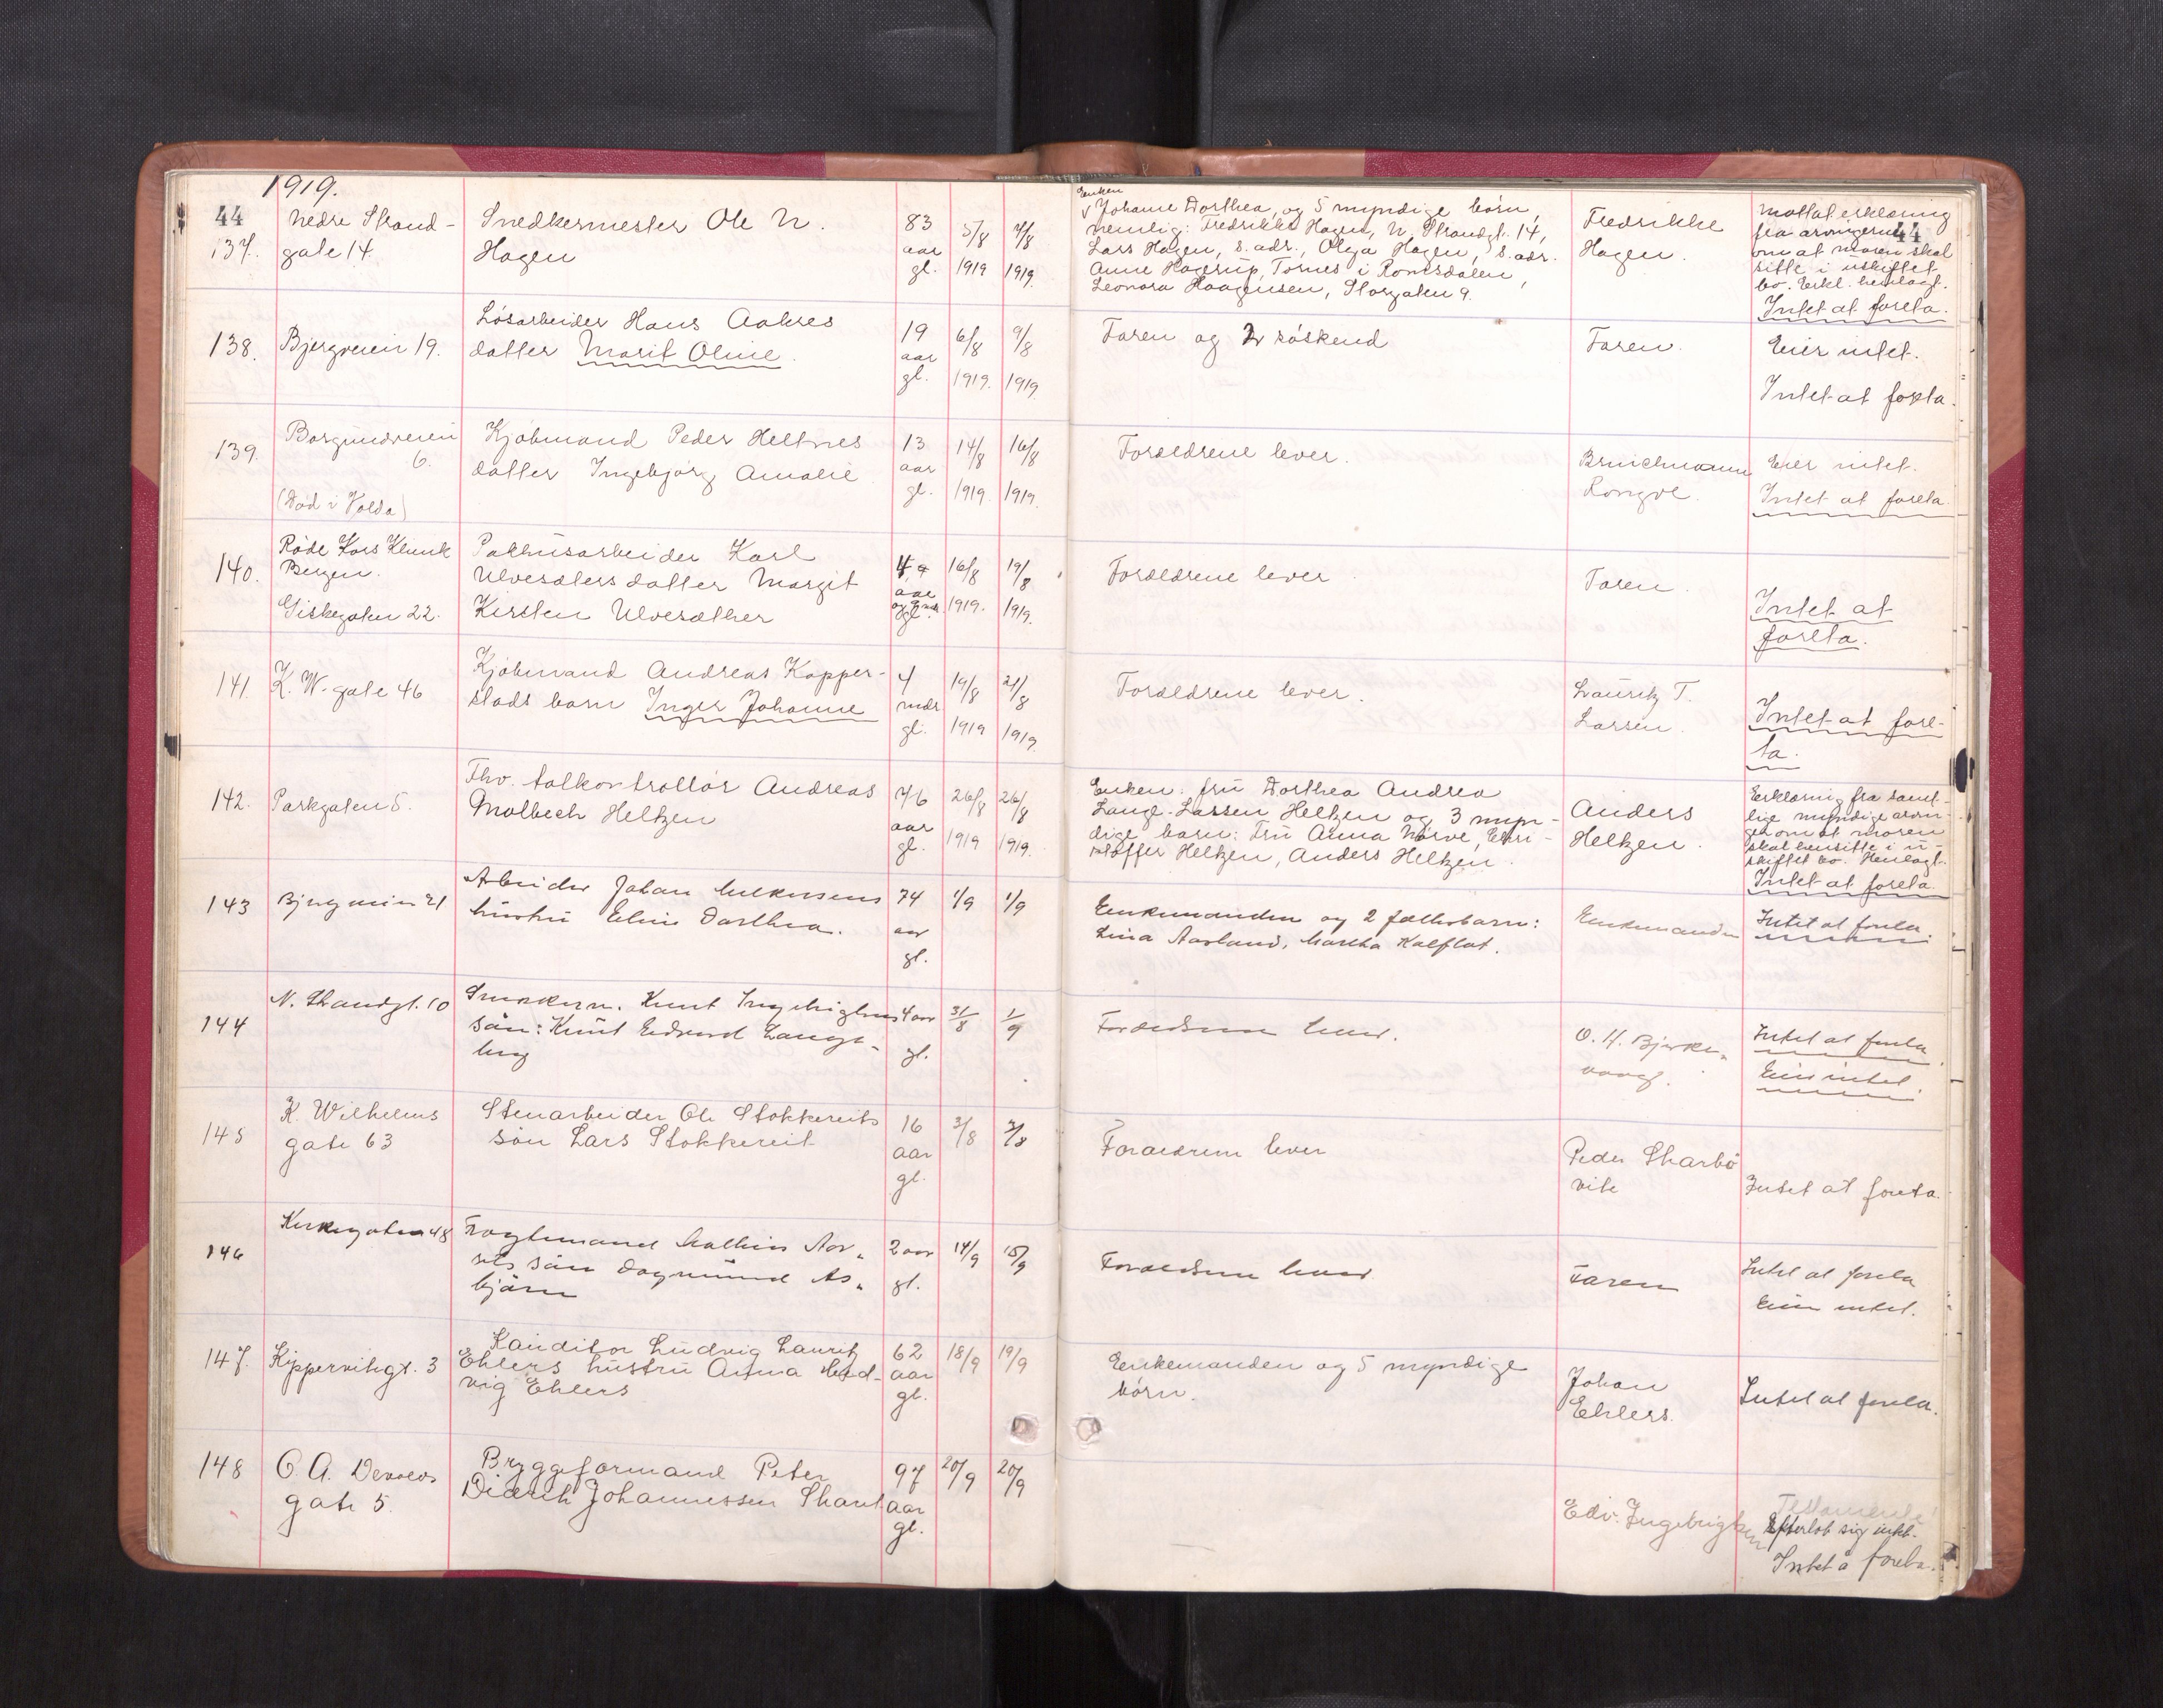 1919.
44
137.
Nedre Strand-
gate 14
Snedkermester Ole N.
Hagen
83
aar
gl.
5/8
1919
7/8
1919.
Enken
Johanne Dorthea, og 5 myndige børn,
nemlig: Fredrikke Hagen, N. Strandgt. 14,
Lars Hagen, s. adr., Olga Hagen, s. adr.
Anne Hagerup, Tornes i Romsdalen,
Leonora Haagensen, Storgaten 9.
Fredrikke
Hagen.
44
Mottat erklæring
fra arvingerne
om at moren skal
sitte i uskiftet
bo. Erkl. henlagt.
Intet at foreta.
138.
Bjergveien 19.
Løsarbeider Hans Aakres
datter Marit Oline.
19
aar
gl.
6/8
1919.
9/8
1919
Faren og 2 søskend
Faren.
Eier intet.
Intet at foreta.
139.
Borgundveien
6.
(Død i Volda)
Kjøbmand Peder Heltnes
datter Ingebjørg Amalie
13
aar
gl.
14/8
1919.
16/8
1919.
Forældrene lever.
Rongve.
Eier intet.
Intet at foreta.
140.
Røde Kors Klinik
Bergen.
Giskegaten 22.
Pakhusarbeider Karl
Ulvesæters datter Margit
Kirsten Ulvesæther
4
aar
gl.
16/8
1919.
19/8
1919.
Forældrene lever
Faren.
Intet at
foreta.
141.
K. W. gate 46
Kjøbmand Andreas Kopper-
stads barn Inger Johanne
4
mdr
gl.
19/8
1919
21/8
1919.
Forældrene lever.
Lauritz T.
Larsen.
Intet at fore-
ta.
142.
Parkgaten 5.
Fhv. tolkontrollør Andreas
Molbech Heltzen
76
aar
gl.
26/8
1919
26/8
1919.
Enken: fru Dorthea Andrea
Lange-Larssen Heltzen og 3 myn-
dige barn: Fru Anna Nørve, Kri-
stoffer Heltzen, Anders Heltzen.
Anders
Heltzen.
Erklæring fra samt-
lige myndige arvin-
ger om at moren
skal hensitte i u-
skiftet bo. Henlagt.
Intet at foreta.
143
Bjergveien 21
Arbeider Johan Mekensens
hustru Eline Dorthea.
74
aar
gl.
1/9
1/9
Enkemanden og 2 fællesbarn:
Lina Aarland, Martha Kalflot.
Enkemanden
Intet at foreta.
144
N. Strandgt. 10
søn: Knut Edvard Lange-
4 aar
gl.
31/8
1/9
Forældrene lever.
O. H. Bjørke-
vaag.
Intet at foreta.
Eier intet.
145
K. Wilhelms
gate 63
Stenarbeider Ole Stokkereits
søn Lars Stokkereit
16
aar
gl.
3/8
7/8
Forældrene lever
Peder Skarbø
vik
Intet at foreta.
146
Kirkegaten 48
Fragtmand Mathias Aar-
sets søn Dagmund As-
bjørn
2 aar
gl.
14/9
15/9
Forældrene lever
Faren
Intet at foreta
Eier intet.
147.
Kippervikgt. 3
Konditor Ludvig Lauritz
Ehlers hustru Anna Hed-
vig Ehlers
62
aar
gl.
18/9
19/9
Enkemanden og 5 myndige
børn.
Johan
Ehlers.
Intet at foreta.
148
O. A. Devolds
gate 5.
Bryggeformand Peter
Didrik Johannessen
97
aar
gl.
20/9
20/9
Edv. Ingebrigtsen
Testamente!
Efterlot sig intet.
Intet å foreta.